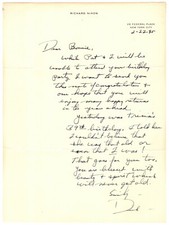 RICHARD NIXON
26 FEDERAL PLAZA
NEW YORK CITY
2-22-81
Dear Bonnie,
While Pat & I will be
unable to attend your birthday
party I want to send you
this note of congratulations &
our hopes that you will
enjoy many happy returns
in the years ahead.
Yesterday was Tricia's
birthday. I told her
I couldn't believe that
she was that old or
soon that I was!
That goes for you too.
You are blessed with
beauty & spirit which
will never get old.
Sincerely